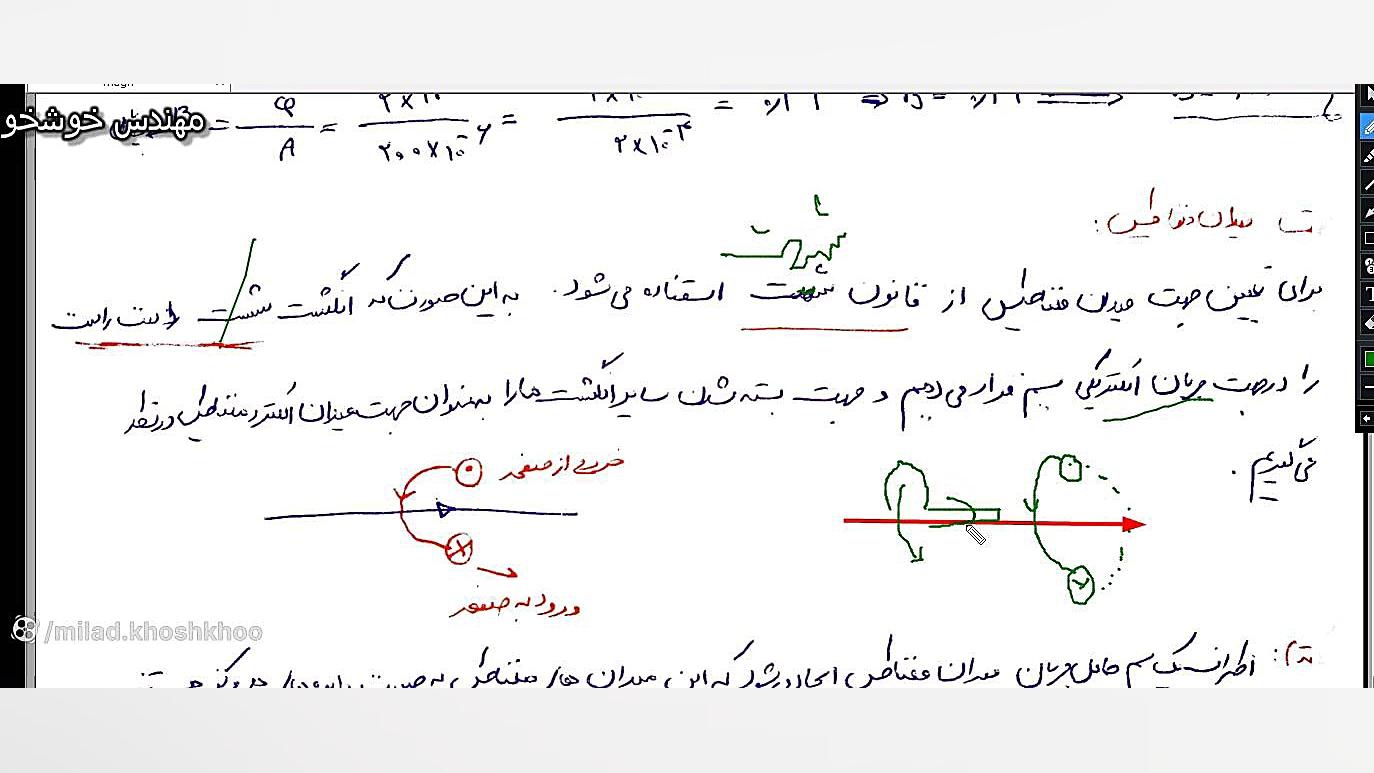 مهندس خوشخو
= φ/A = / ۲۰۰×۱۰⁻⁶ = / ۲×۱۰⁻⁴ =
میدان مغناطیسی:
برای تعیین جهت میدان مغناطیسی از قانون شست استفاده می‌شود. به این صورت که انگشت شست دست راست
را در جهت جریان الکتریکی سیم قرار می‌دهیم و جهت بسته شدن سایر انگشت ها را به عنوان جهت میدان الکترومغناطیسی در نظر
می‌گیریم.
خروج از صفحه
ورود به صفحه
/milad.khoshkhoo
اطراف یک سیم حامل جریان میدان مغناطیسی ایجاد می‌شود که این میدان های مغناطیسی به صورت